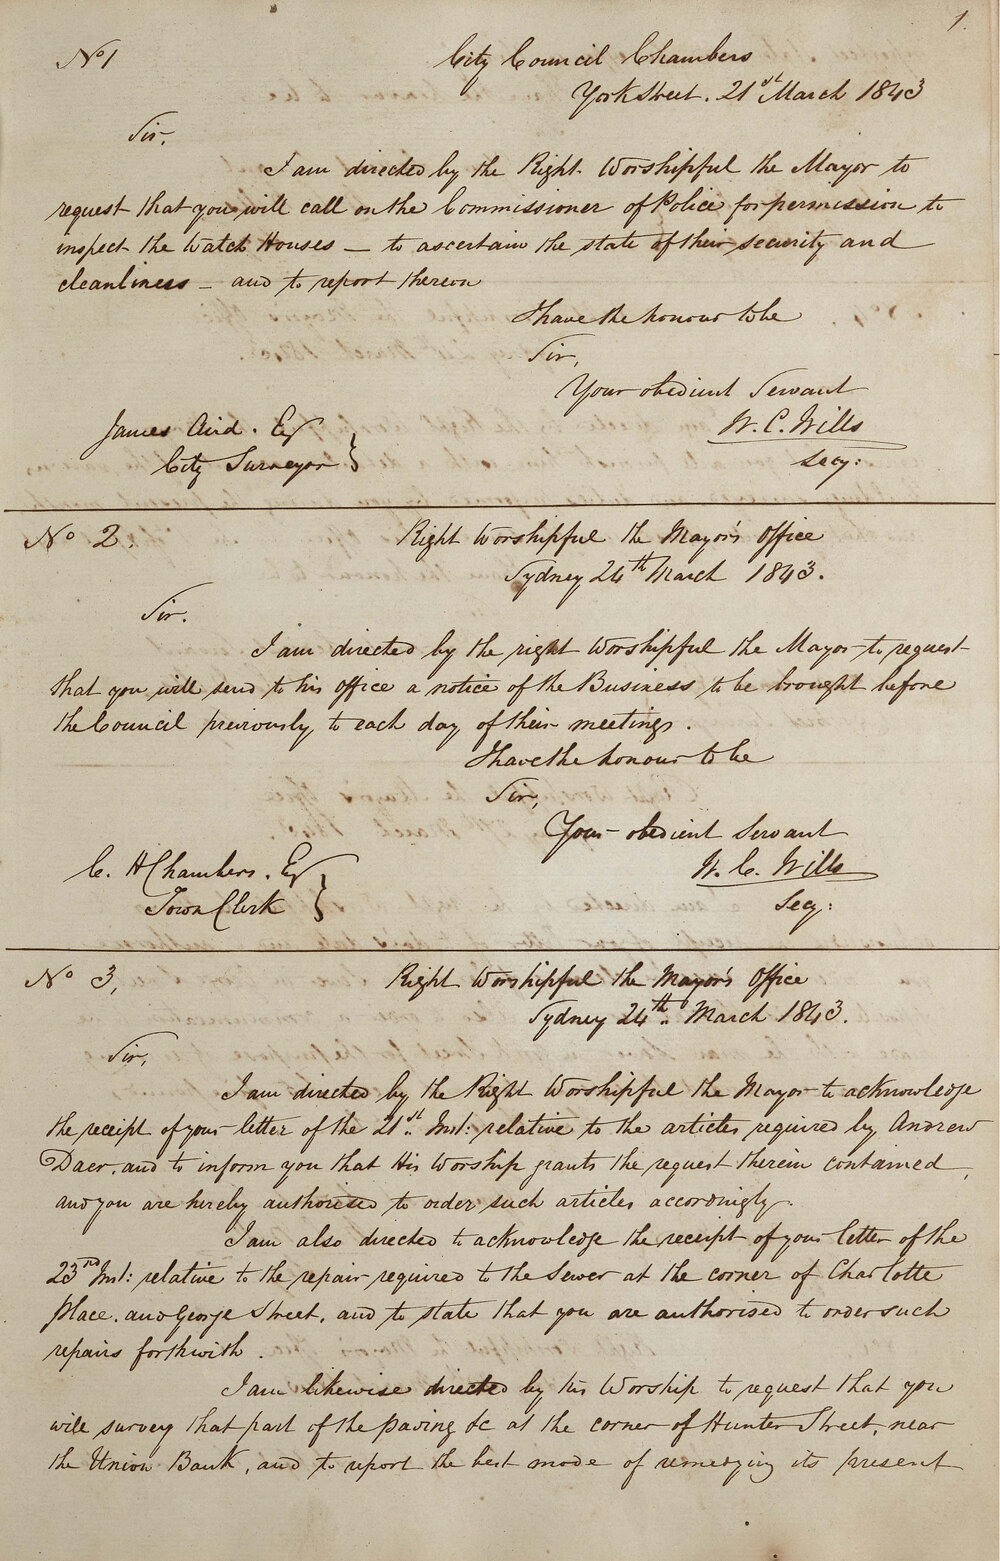 1.
No 1
City Council Chambers
York Street. 21st March 1843
Sir.
I am directed by the Right Worshipful the Mayor to
request that you will call on the Commissioner of Police for permission to
inspect the Watch Houses – to ascertain the state of their security and
cleanliness – and to report thereon
I have the honour to be
Sir,
Your obedient Servant
W. C. Wills
Secy:
James Aird. Esq
City Surveyor
No 2.
Right Worshipful the Mayor's Office
Sydney 24th March 1843.
Sir.
I am directed by the right Worshipful the Mayor to request
that you will send to his office a notice of the Business to be brought before
the Council previously to each day of their meetings.
I have the honour to be
Sir,
Your obedient Servant
W. C. Wills
Secy:
C. H Chambers. Esq
Town Clerk
No 3,
Right Worshipful the Mayor's Office
Sydney 24th March 1843.
Sir,
I am directed by the Right Worshipful the Mayor to acknowledge
the receipt of your letter of the 21st Inst: relative to the articles required by Andrew
Daer. and to inform you that His Worship grants the request therein contained,
and you are hereby authorised to order such articles accordingly.
I am also directed to acknowledge the receipt of your letter of the
23rd Inst: relative to the repair required to the Sewer at the corner of Charlotte
Place. and George Street, and to state that you are authorised to order such
repairs forthwith.
I am likewise directed by his Worship to request that you
will survey that part of the paving &c at the corner of Hunter Street, near
the Union Bank, and to report the best mode of remedying its present